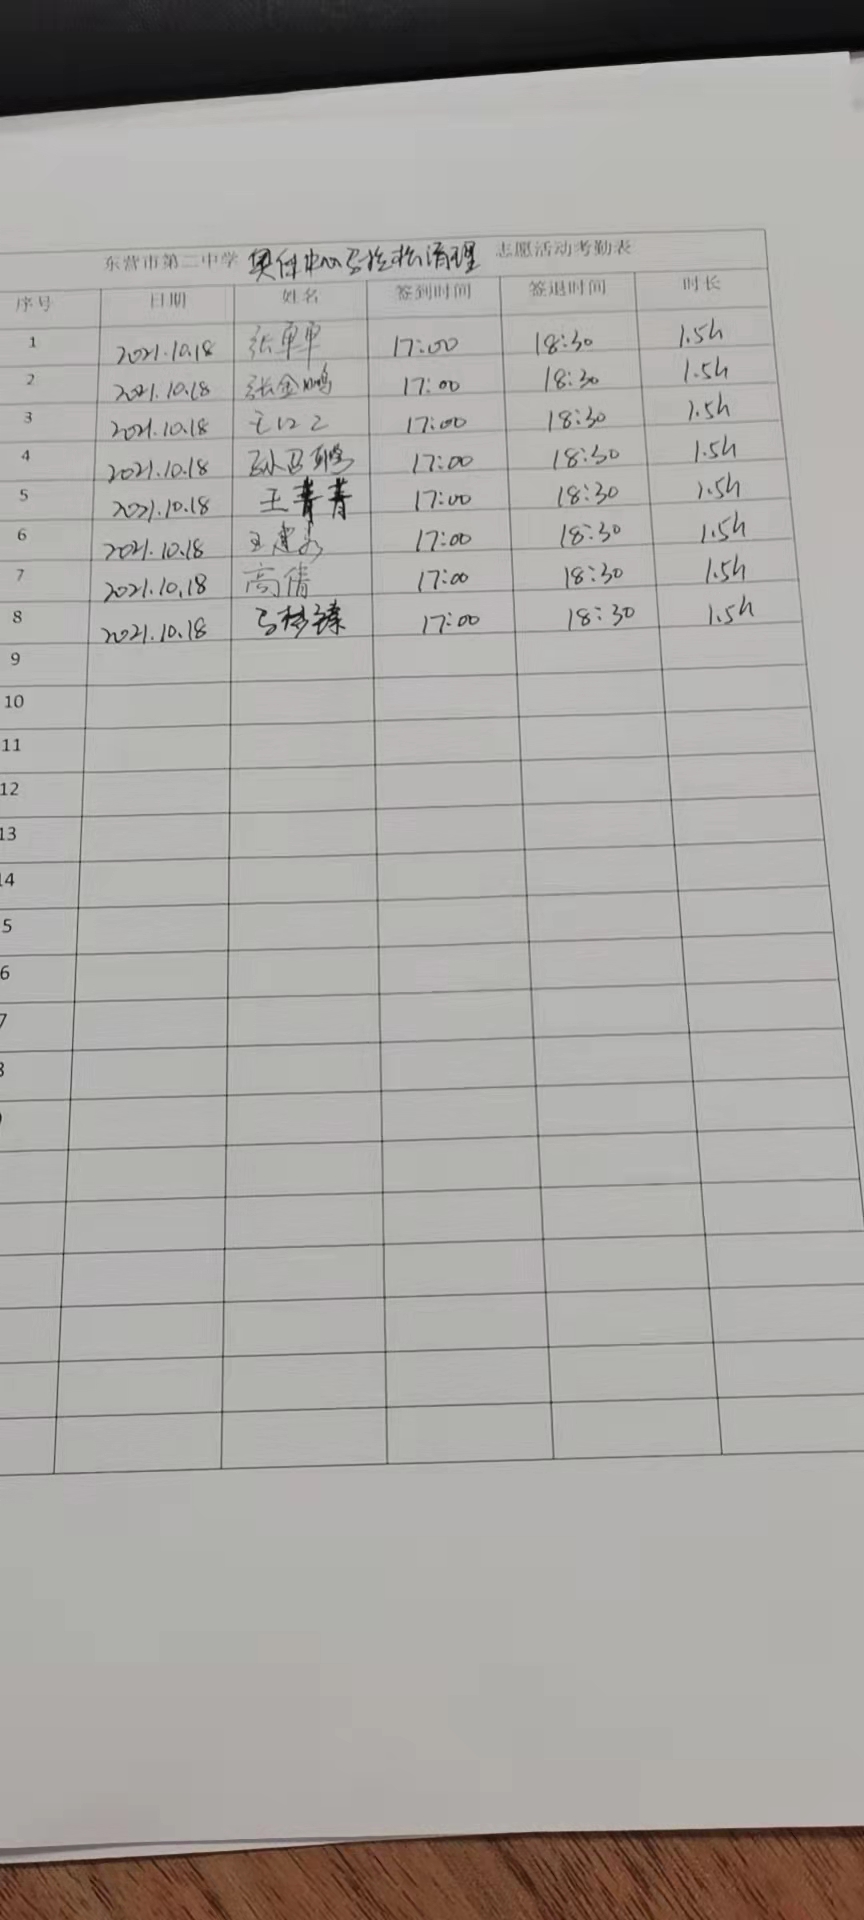 东营市第二中学 奥体中心马拉松清理 志愿活动考勤表
序号 日期 姓名 签到时间 签退时间 时长
1 2021.10.18 张单单 17:00 18:30 1.5h
2 2021.10.18 张金鹏 17:00 18:30 1.5h
3 2021.10.18 17:00 18:30 1.5h
4 2021.10.18 17:00 18:30 1.5h
5 2021.10.18 王菁菁 17:00 18:30 1.5h
6 2021.10.18 17:00 18:30 1.5h
7 2021.10.18 高倩 17:00 18:30 1.5h
8 2021.10.18 马梦臻 17:00 18:30 1.5h
9
10
11
12
13
14
5
6
7
8